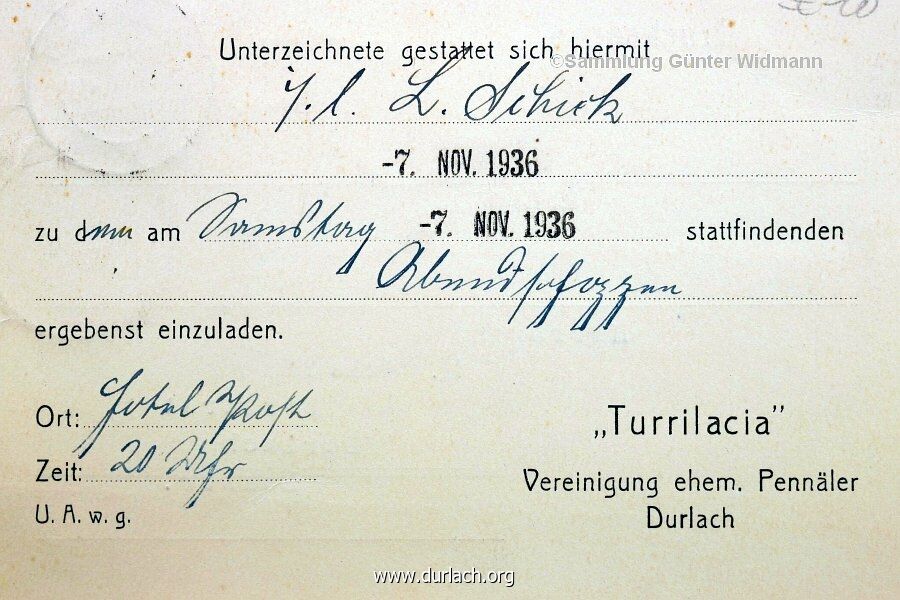 Unterzeichnete gestattet sich hiermit
©Sammlung Günter Widmann
L. Schick
-7. NOV. 1936
zu dem am Samstag -7. NOV. 1936 stattfindenden
Abendschoppen
ergebenst einzuladen.
Ort: Hotel Post
Zeit: 20 Uhr
U. A. w. g.
„Turrilacia"
Vereinigung ehem. Pennäler
Durlach
www.durlach.org